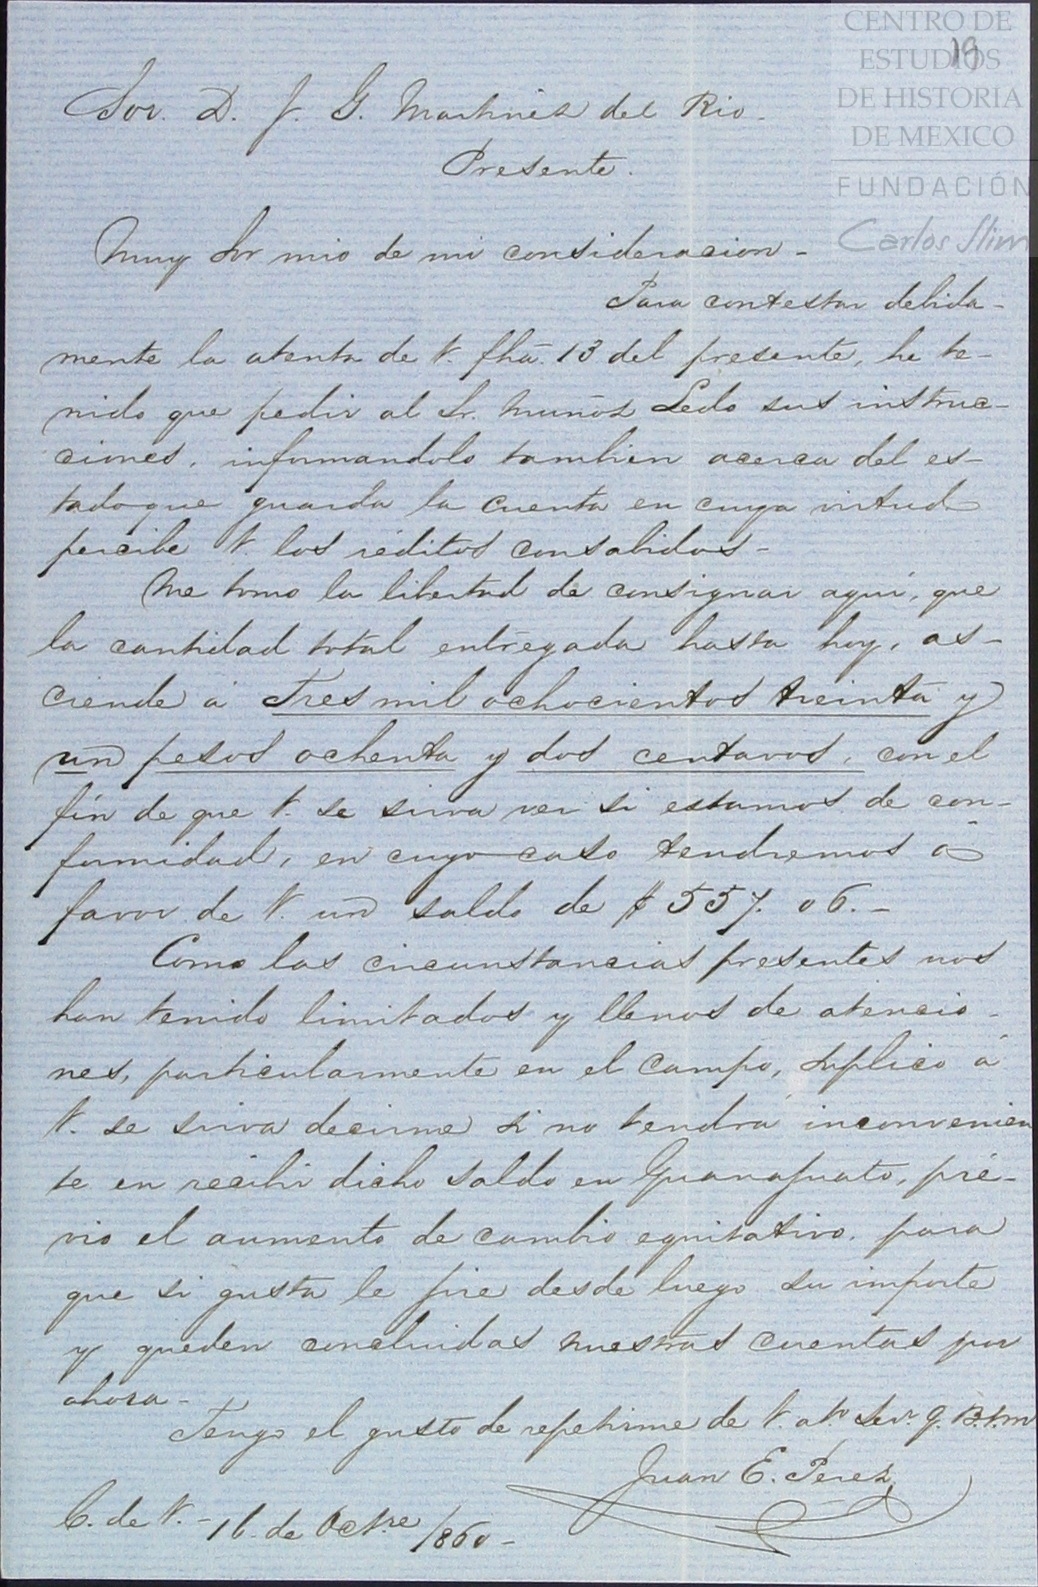 CENTRO DE
ESTUDIOS
DE HISTORIA
DE MEXICO
FUNDACIÓN
Carlos Slim
19
Sor. D. J. G. Martinez del Rio.
Presente.
Muy Sor mio de mi consideracion -
Para contestar debida-
mente la atenta de V. fhã. 13 del presente, he te-
nido que pedir al Sr. Muñoz Ledo sus instruc-
ciones, informandolo tambien acerca del es-
tado que guarda la cuenta en cuya virtud
percibe V. los réditos consabidos -
Me tomo la libertad de consignar aquí, que
la cantidad total entregada hasta hoy, as-
ciende á Tres mil ochocientos treinta y
un pesos ochenta y dos centavos, con el
fín de que V. se sirva ver si estamos de con-
formidad, en cuyo caso tendremos á
favor de V. un saldo de $557. 06. -
Como las circunstancias presentes nos
han tenido limitados y llenos de atencio-
nes, particularmente en el campo, suplico á
V. se sirva decirme si no tendrá inconvenien
te en recibir dicho saldo en Guanajuato, pré-
vio el aumento de cambio equitativo, para
que si gusta le jire desde luego su importe
y queden concluidas nuestras cuentas por
ahora -
Tengo el gusto de repetirme de V. ato Servr q. B. s. m
Juan E. Perez
C. de V. - 16. de Octre /860 -